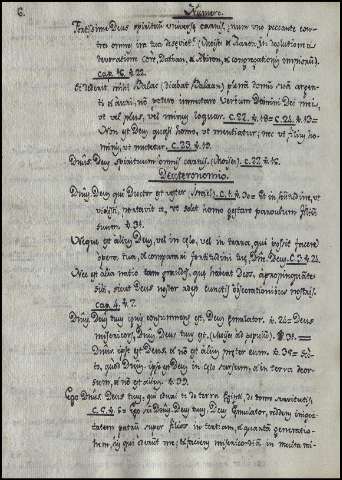 6. Numero.
Fortissime Deus spirituum universæ carnis, num uno peccante con-
tra omnes ira tua desæviet? (Moises & Aaron in
Dathan, & Abiron, & congregationis
cap. 16. ℣. 22.
Si dederit mihi Balac (dicebat Balaam) plenam domum suam argen-
ti & auri, non potero immutare Verbum Domini Dei mei,
ut vel plus, vel minus loquar. c. 22. ℣. 18 = C. 24. ℣. 13 =
Non est Deus quasi homo, ut mentiatur; nec ut filius ho-
minis, ut mutetur. C. 23. ℣. 19.
Dnus. Deus spirituum omnis carnis. (Moises). C. 27. ℣. 16.
Deuteronomio.
Dnus. Deus qui Ductor est vester Israel). C. 1. ℣. 30 = Et in solitudine, ut
vidisti, portavit te, ut solet homo gestare parvulum filium
suum. ℣. 31.
Neque est alius Deus, vel in cœlo, vel in terra, qui possit facere
opera tua, & comparari fortitudini tuæ, Dne. Deus. C. 3. ℣. 24.
Nec est alia natio tam grandis, quæ habeat Deos, appropinquantes
sibi, sicut Deus noster adest cunctis obsecrationibus nostris.
cap. 4. ℣. 7.
Dnus. Deus tuus ignis consummens est, Deus æmulator. ℣. 24 = Deus
misericors, Dnus. Deus tuus est. (Moises ad populum). ℣. 31. =
Dnus. ipse est Deus, & non est alius præter eum. ℣. 35 = Sci-
to, quod Dnus. ipse est Deus in cœlo sursum, & in terra deor-
sum, & non est alius. ℣. 39.
Ego Dnus. Deus tuus, qui eduxi te de terra Egipti, de domo servitutis.
C. 5. ℣. 6 = Ego sum Dnus. Deus tuus, Deus Æmulator, reddens iniqui-
tatem patrum super filios in tertiam, & quartam generatio-
nem, iis qui oderunt me; & faciens misericordiam in multa mi-